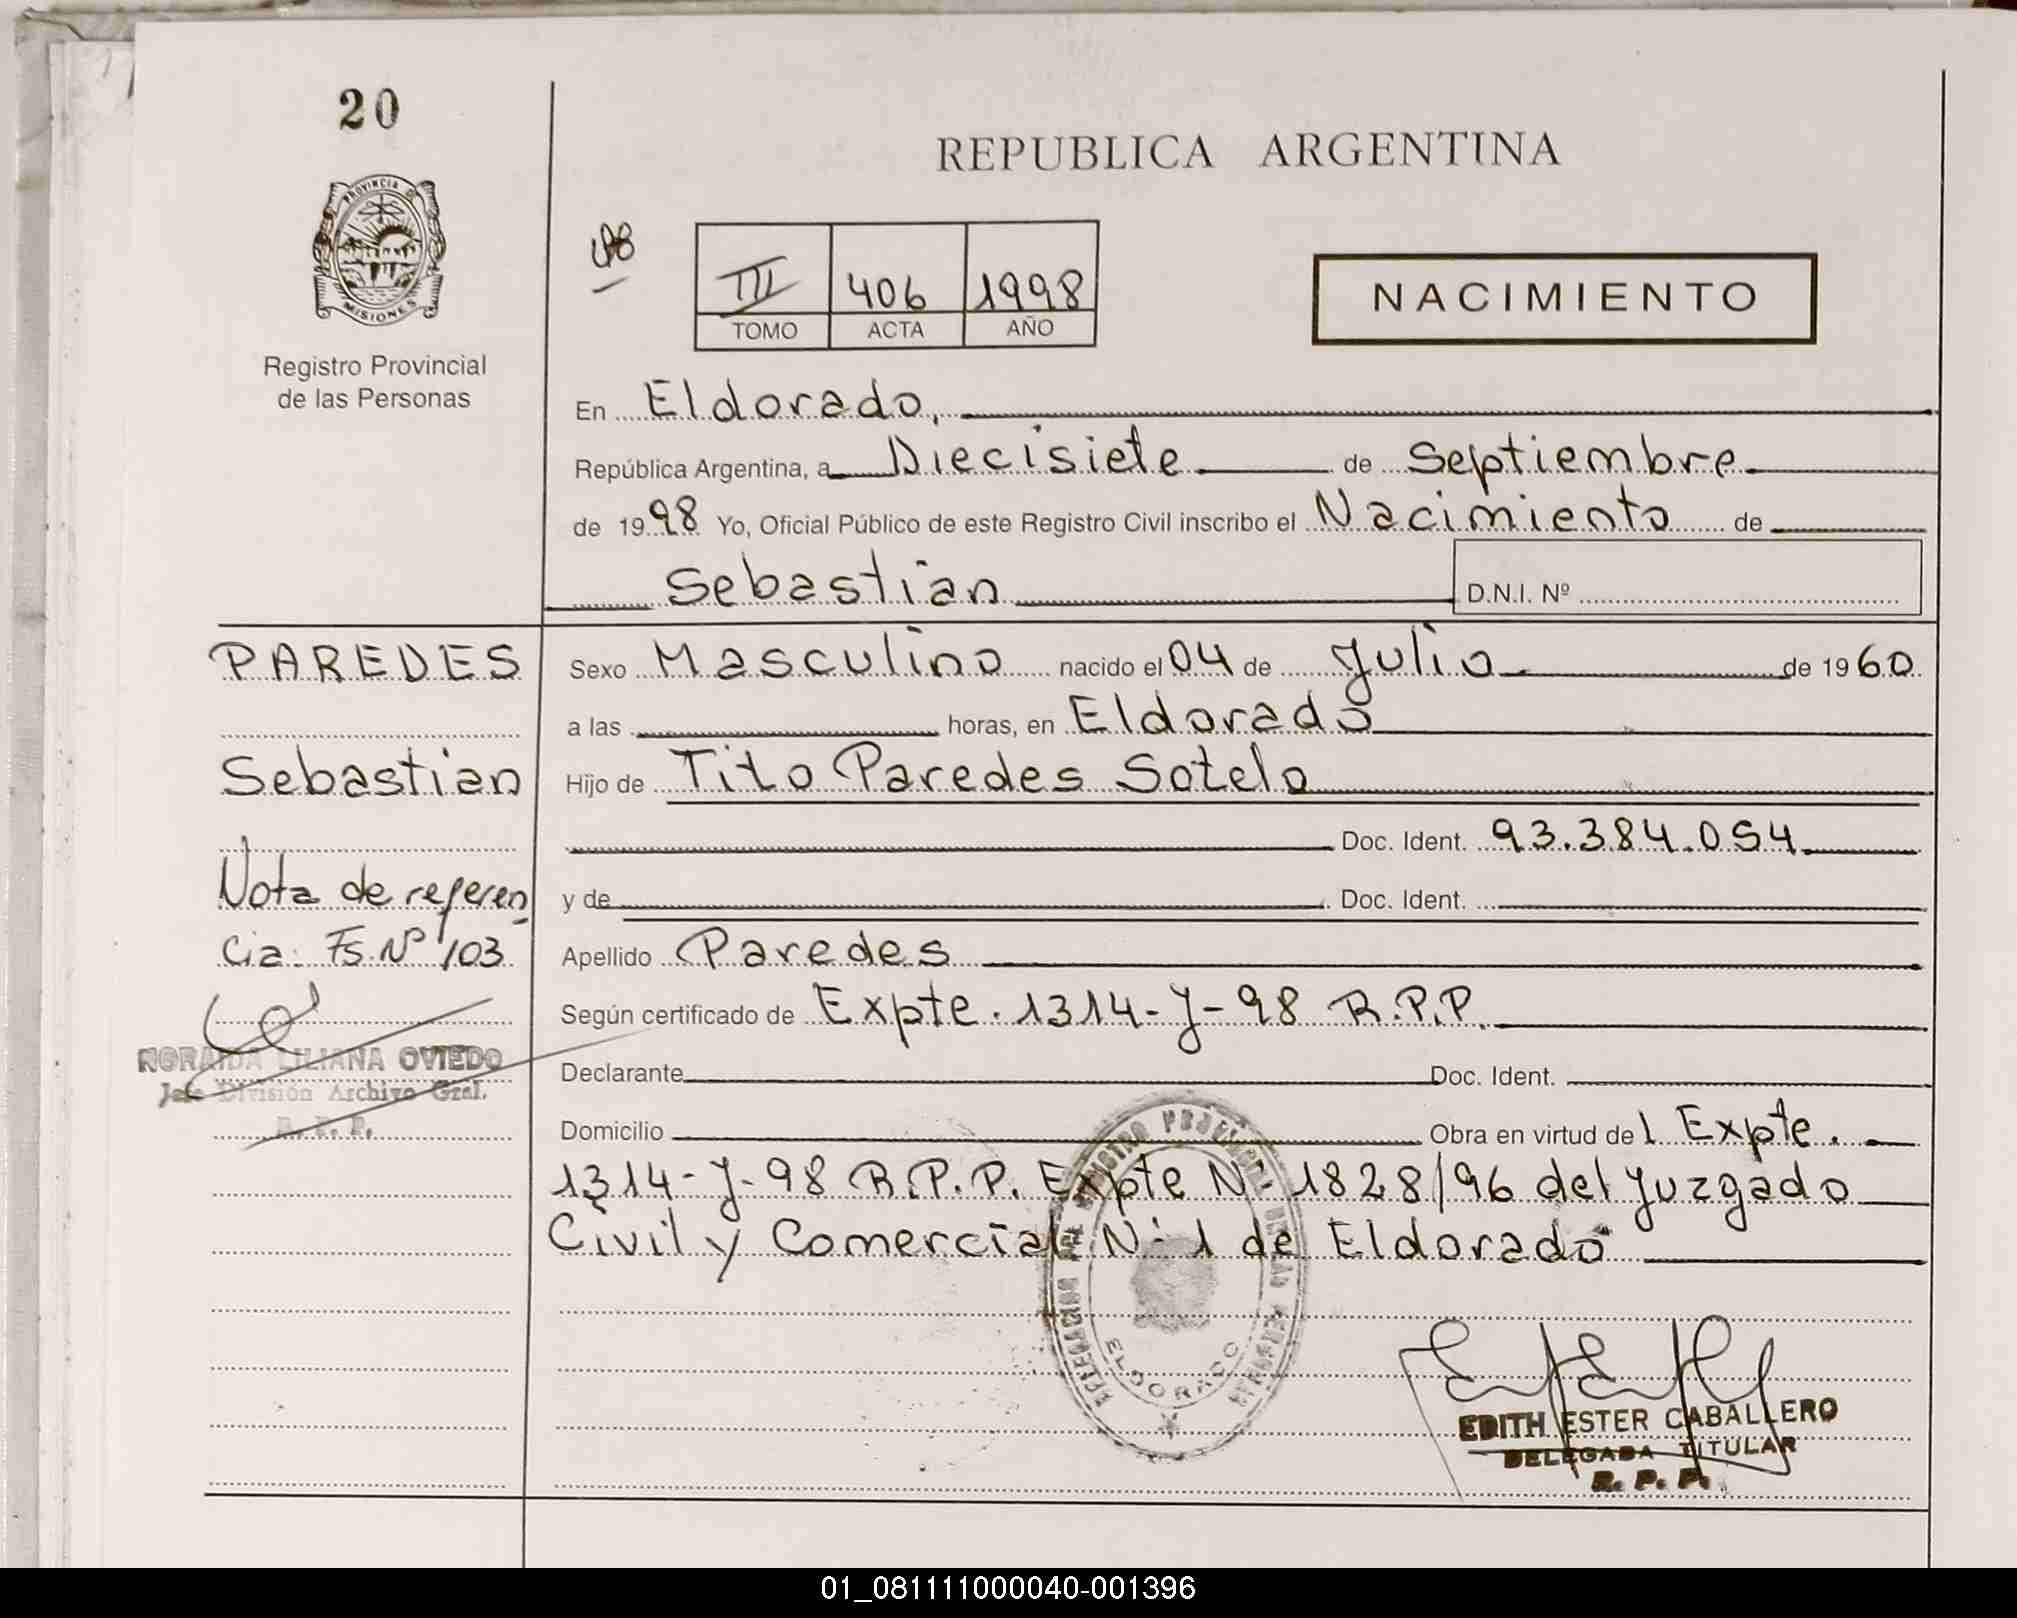 20
PROVINCIA D
MISIONES
Registro Provincial
de las Personas
REPUBLICA ARGENTINA
III 406 1998
TOMO ACTA AÑO
NACIMIENTO
En Eldorado,
República Argentina, a Diecisiete de Septiembre
de 1998 Yo, Oficial Público de este Registro Civil inscribo el Nacimiento de
Sebastian
D.N.I. Nº
PAREDES
Sebastian
Nota de referen
cia: Fs. Nº 103
NORAIDA LILIANA OVIEDO
Jefe División Archivo Gral.
R. P. P.
Sexo Masculino nacido el 04 de Julio de 1960
a las horas, en Eldorado
Hijo de Tito Paredes Sotelo
Doc. Ident. 93.384.054
y de Doc. Ident.
Apellido Paredes
Según certificado de Expte. 1314-J-98 R.P.P.
Declarante Doc. Ident.
Domicilio Obra en virtud del Expte.
1314-J-98 R.P.P. Expte Nº 1828/96 del Juzgado
Civil y Comercial Nº 1 de Eldorado
DELEGACION DEL REGISTRO PROVINCIAL DE LAS PERSONAS
ELDORADO
EDITH ESTER CABALLERO
DELEGADA TITULAR
R. P. P.
01_081111000040-001396